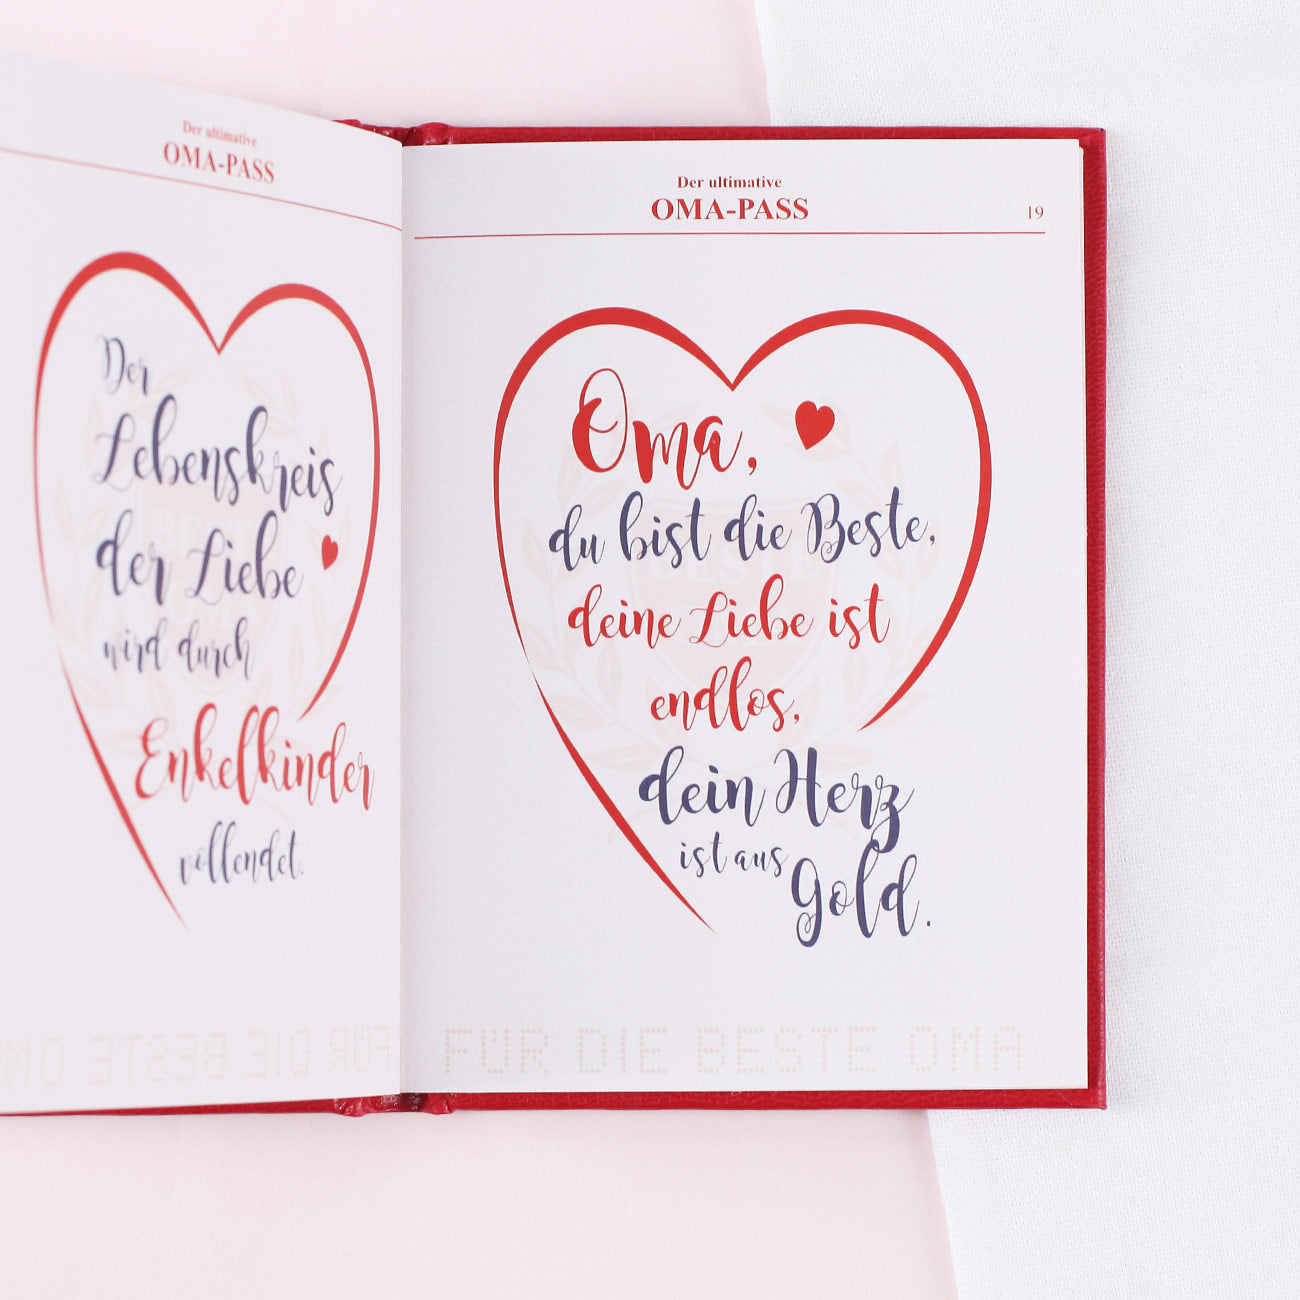 Der ultimative
OMA-PASS
Der
Lebenskreis
der Liebe
wird durch
Enkelkinder
vollendet.
FÜR DIE BESTE OM
Der ultimative
OMA-PASS
19
Oma,
du bist die Beste,
deine Liebe ist
endlos,
dein Herz
ist aus
Gold.
BESTE
FÜR DIE BESTE OMA